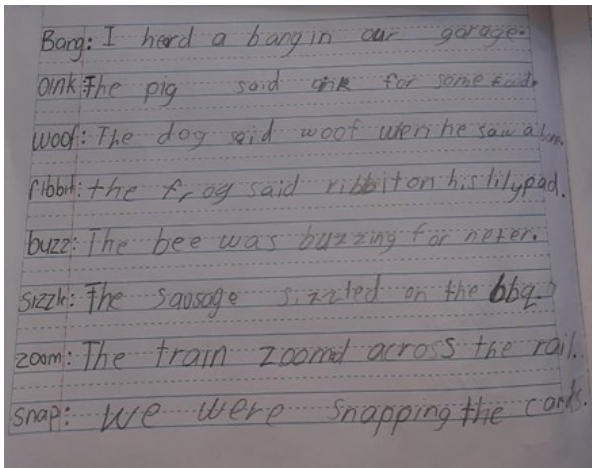 Bang: I herd a bang in our garage.
oink: The pig said oink for some food.
woof: The dog said woof wen he saw a
ribbit: the frog said ribbit on his lilypad.
buzz: The bee was buzzing for neter.
sizzle: The sausage sizzled on the bbq.
zoom: The train zoomd across the rail.
snap: We were snapping the cards.